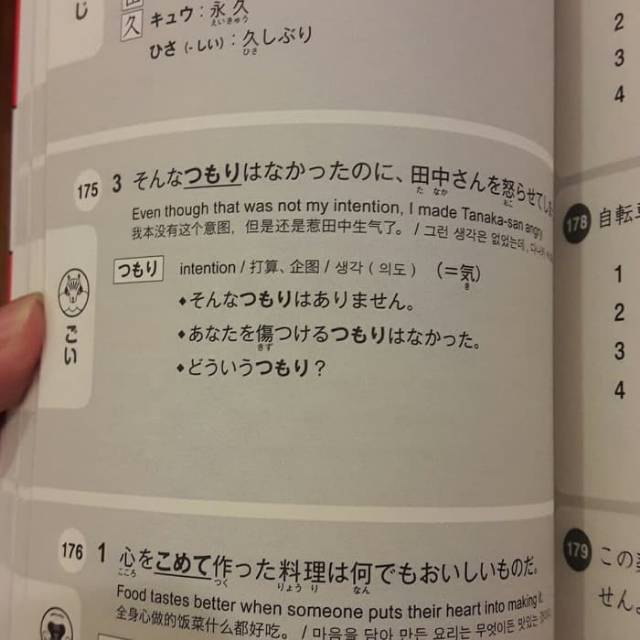 じ
久 キュウ：永久
えいきゅう
ひさ (-しい)：久しぶり
ひさ
175 3 そんなつもりはなかったのに、田中さんを怒らせてし
た なか おこ
Even though that was not my intention, I made Tanaka-san angry
我本没有这个意图，但是还是惹田中生气了。 / 그런 생각은 없었는데,
つもり intention / 打算、企图 / 생각 ( 의도 ) （＝気）
き
◆そんなつもりはありません。
◆あなたを傷つけるつもりはなかった。
きず
◆どういうつもり？
ごい
176 1 心をこめて作った料理は何でもおいしいものだ。
こころ つく りょう り なん
Food tastes better when someone puts their heart into making it.
全身心做的饭菜什么都好吃。 / 마음을 담아 만든 요리는 무엇이든 맛있는
2
3
4
178 自転
1
2
3
4
179 この
せん。